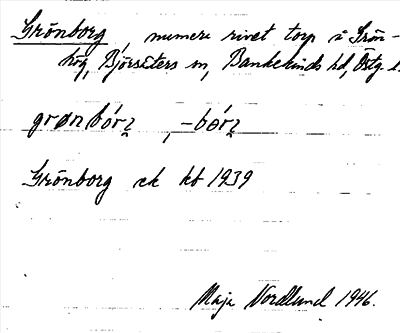 Grönborg, numera rivet torp i Grön-
hög, Björsäters sn, Bankekinds hd, Östg. l.
grønbórꝛ, -bórꝛ
Grönborg ek kb 1939
Maja Nordlund 1946.